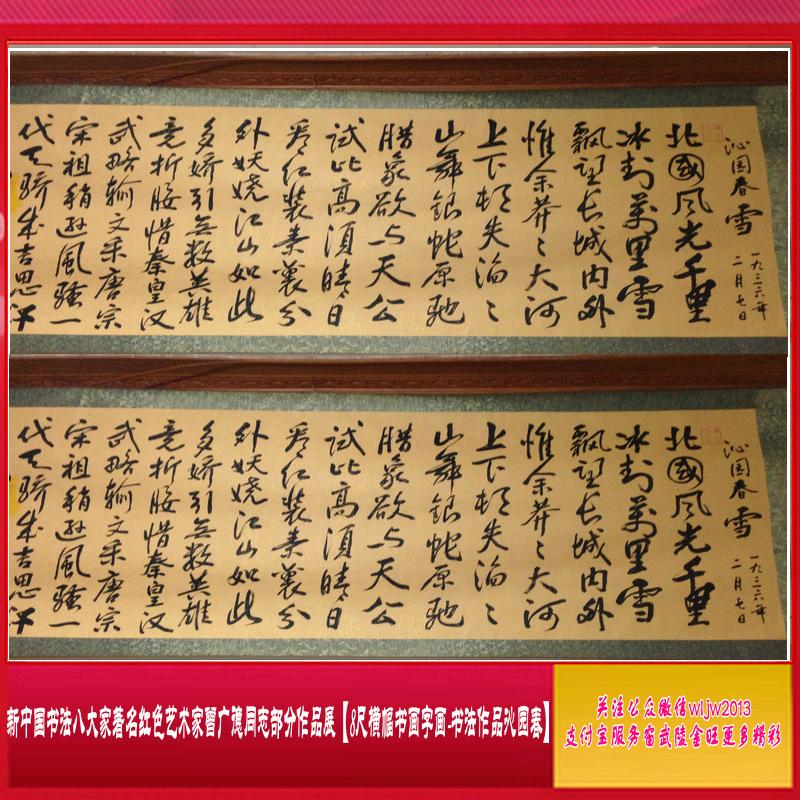 沁园春 雪
一九三六年
二月七日
北國风光千里
冰封萬里雪
飘望长城内外
惟余莽々大河
上下顿失滔々
山舞银蛇原驰
腊象欲与天公
试比高须晴日
看红装素裹分
外妖娆江山如此
多娇引无数英雄
竞折腰惜秦皇汉
武略输文采唐宗
宋祖稍逊風騷一
代天骄成吉思汗
沁园春 雪
一九三六年
二月七日
北國风光千里
冰封萬里雪
飘望长城内外
惟余莽々大河
上下顿失滔々
山舞银蛇原驰
腊象欲与天公
试比高须晴日
看红装素裹分
外妖娆江山如此
多娇引无数英雄
竞折腰惜秦皇汉
武略输文采唐宗
宋祖稍逊風騷一
代天骄成吉思汗
新中国书法八大家著名红色艺术家習广德同志部分作品展【8尺横幅书画字画-书法作品沁园春】
关注公众微信wljw2013
支付宝服务窗武陵金旺更多精彩